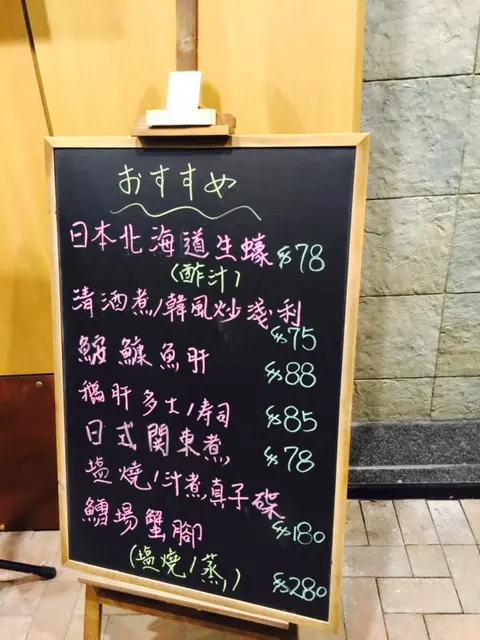 おすすめ
日本北海道生蠔 $78
(酢汁)
清酒煮/韓風炒淺利
$75
鮟鱇魚肝 $88
鵝肝多士/寿司 $85
日式関東煮 $78
塩燒/汁煮真子碟
$180
鱈場蟹腳
(塩燒/蒸) $280